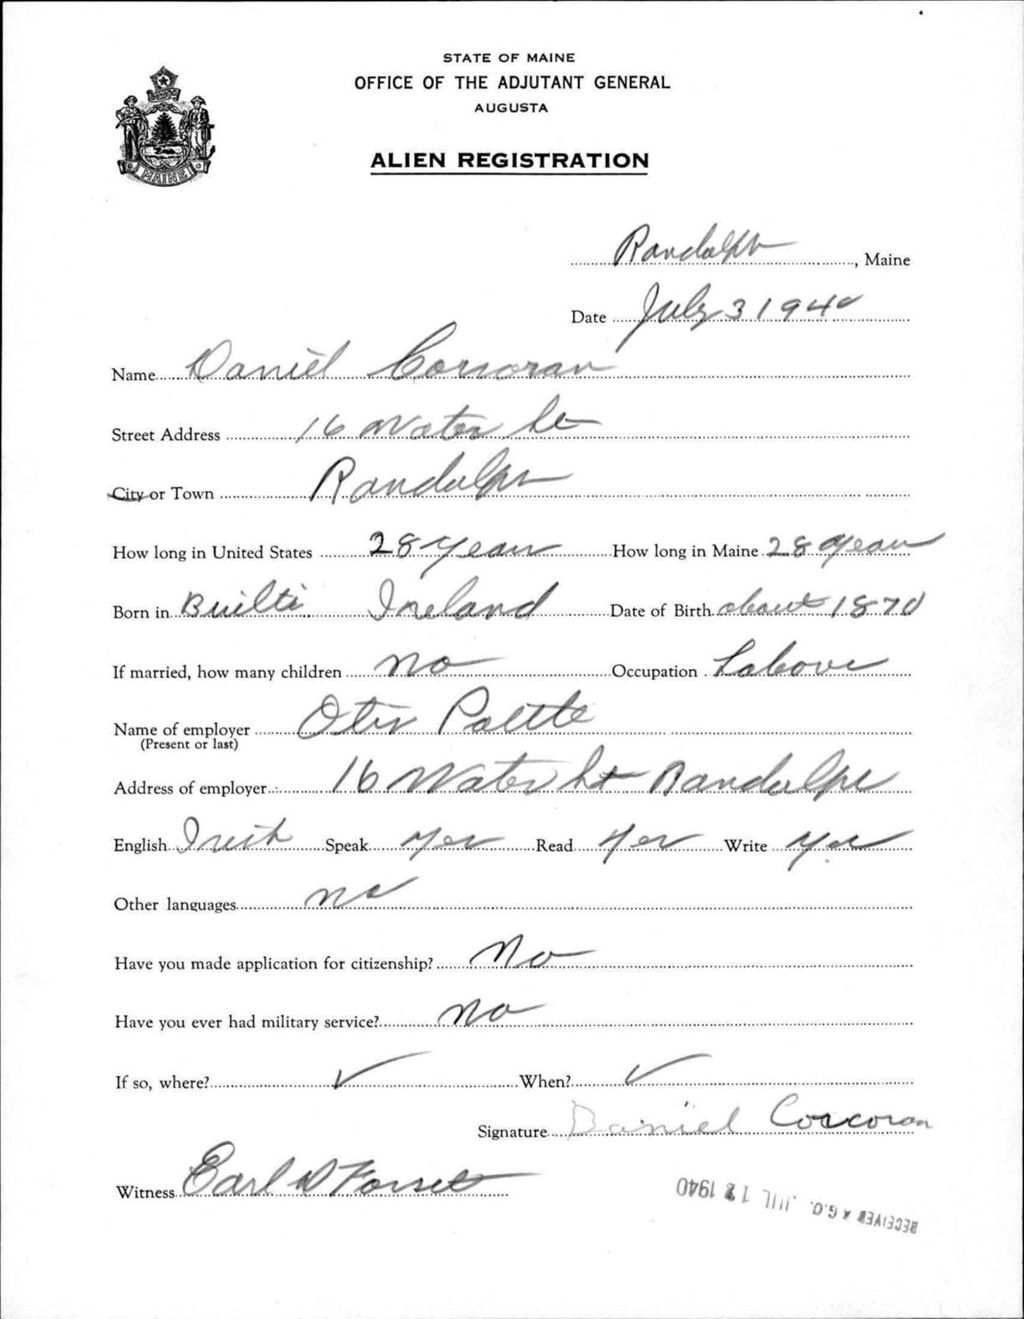 STATE OF MAINE
OFFICE OF THE ADJUTANT GENERAL
AUGUSTA
ALIEN REGISTRATION
MAINE
Randolph, Maine
Date July 3 1940
Name Daniel Corcoran
Street Address 16 Water St
City or Town Randolph
How long in United States 28 years How long in Maine 28 years
Born in Ireland Date of Birth about 1870
If married, how many children no Occupation Labore
Name of employer Otis
(Present or last)
Address of employer 16 Water St Randolph
English Irish Speak yes Read yes Write yes
Other languages no
Have you made application for citizenship? No
Have you ever had military service? no
If so, where? ✓ When? ✓
Signature Daniel Corcoran
Witness Earl D
RECEIVED A.G.O. JUL 12 1940